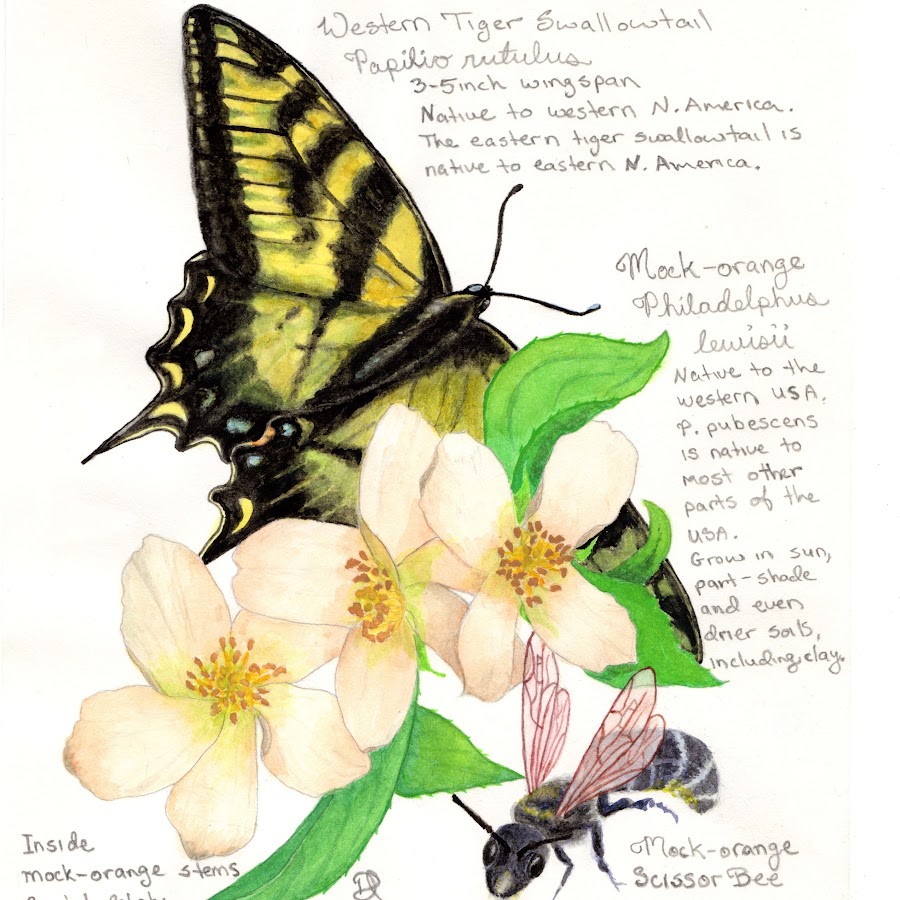 Western Tiger Swallowtail
Papilio rutulus
3-5inch wingspan
Native to western N. America.
The eastern tiger swallowtail is
native to eastern N. America.
Mock-orange
Philadelphus
lewisii
Native to the
western USA.
P. pubescens
is native to
most other
parts of the
USA.
Grow in sun,
part-shade
and even
drier soils,
including clay.
Mock-orange
Scissor Bee
Inside
mock-orange stems